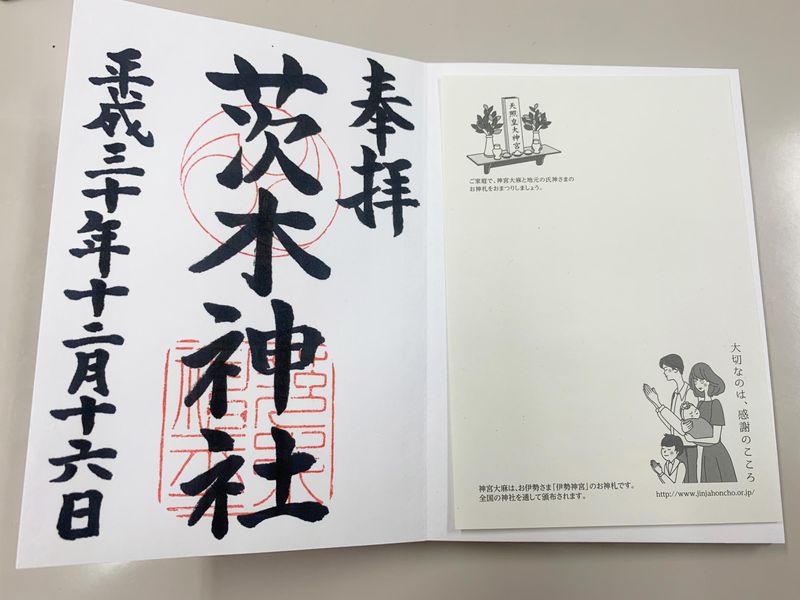 奉拝
茨木神社
平成三十年十二月十六日
天照皇大神宮
ご家庭で、神宮大麻と地元の氏神さまの
お神札をおまつりしましょう。
大切なのは、感謝のこころ
神宮大麻は、お伊勢さま「伊勢神宮」のお神札です。
全国の神社を通して頒布されます。
http://www.jinjahoncho.or.jp/